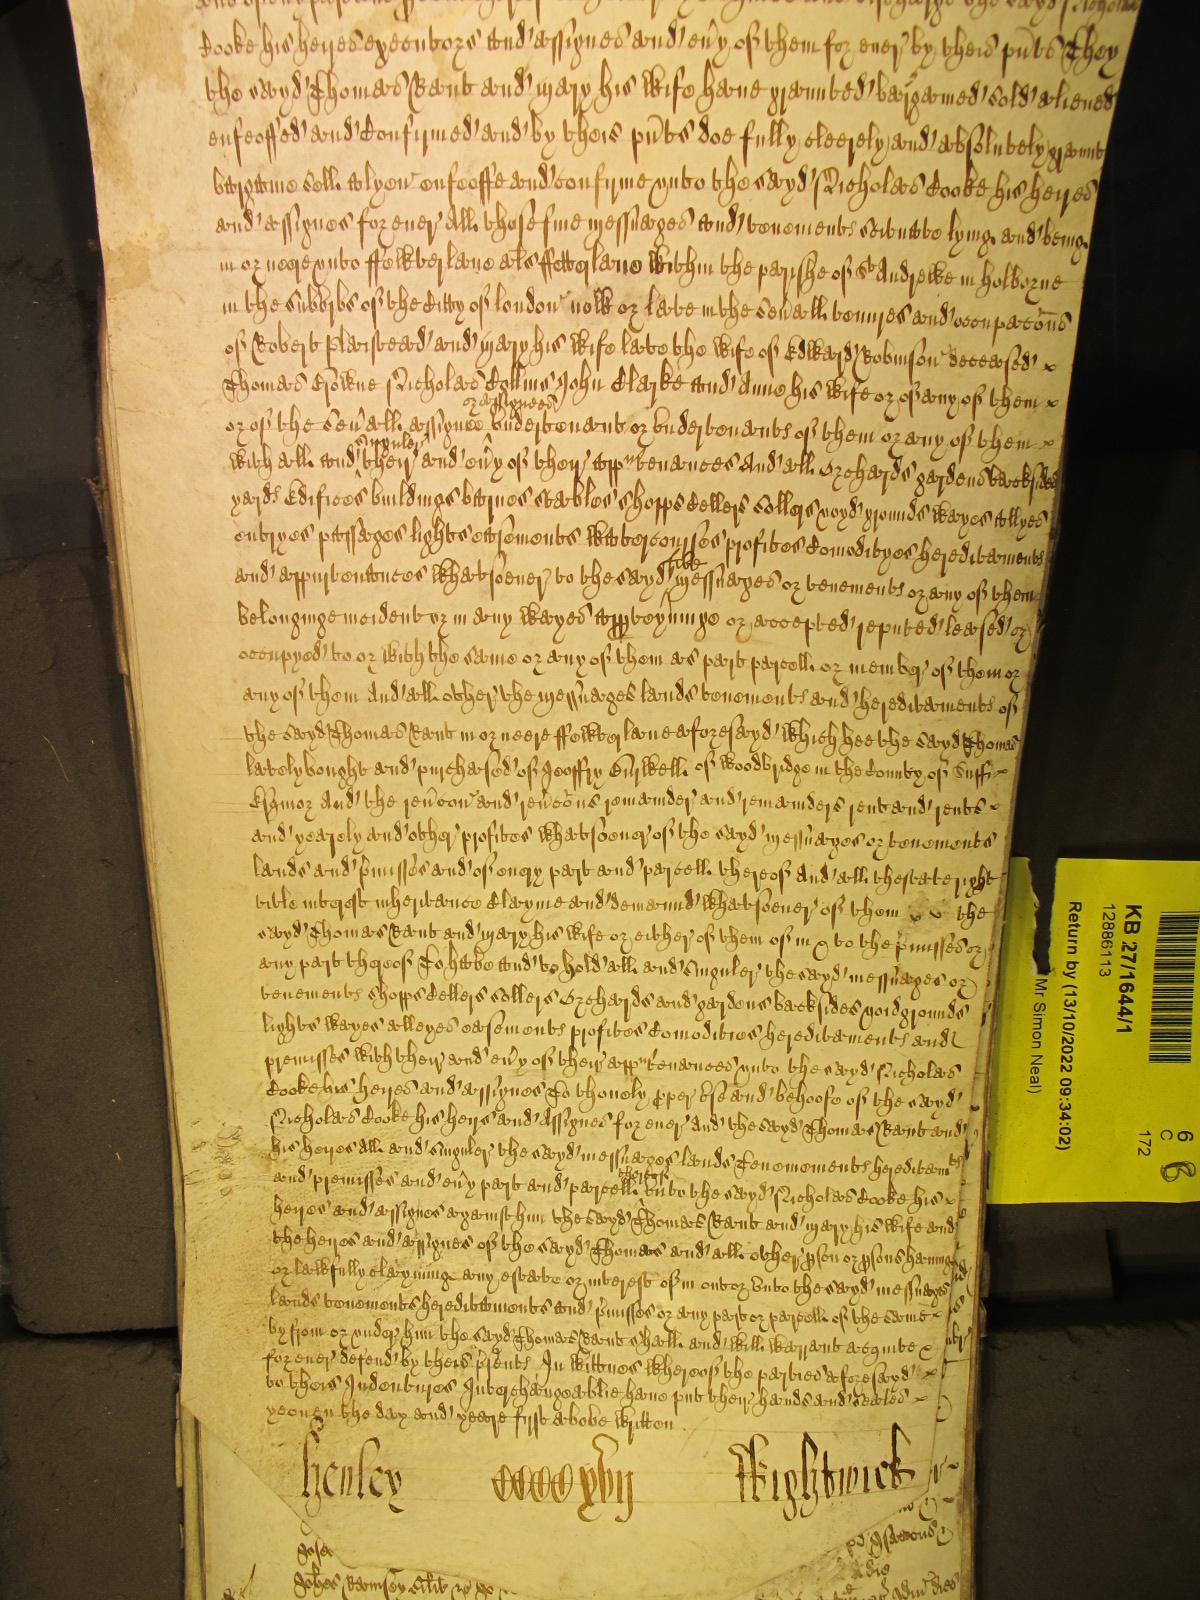 Cooke his heires executors and assignes and eu'y of them for euer by theis p'nts They
the sayd Thomas Rant and Mary his wife haue graunted bargained sold aliened
enfeoffed and Confirmed and by theis p'nts doe fully cleerely and absolutely graunt
bargaine sell alyen enfeoffe and confirme vnto the sayd Nicholas Cooke his heires
and assignes for euer All those fiue messuages and tenements scituate lying and being
in or neere vnto ffewterlane als ffetterlane within the parishe of St Andrewe in Holborne
in the subbvbs of the Citty of London now or late in the seu'all tenures and occupacons
of Robert Plaistead and Mary his wife late the wife of Edward Robinson deceased
Thomas Crowne Nicholas Collins John Clarke and Anne his wife or of any of them
or of the seu'all assignee or assignees vndertenant or vndertenants of them or any of them
with all and singuler their and eu'y of their app'tenances And all Orchards gardens backsides
yards Edifices buildings barnes stables shopps Cellers sollers voyd grounds wayes Allyes
entryes passages lights easements watercourses profites Comodityes hereditaments
and appurtenances whatsoeuer to the sayd fiue messuages or tenements or any of them
belonginge incident or in any wayes apperteyninge or accepted reputed leased or
occupyed to or with the same or any of them as part parcell or member of them or
any of them And all other the messuages lands tenements and hereditaments of
the sayd Thomas Rant in or neere ffewter lane aforesayd which hee the sayd Thomas
lately bought and purchased of Jeoffry Burwell of Woodbridge in the County of Suff
Esq'r And the reu'con and reu'cons remainder and remainders rent and rents
and yearely and other profites whatsoeuer of the sayd messuages or tenements
lands and p'misses and of euery part and parcell thereof And all thestate right
title interest inheritance Clayme and demaund whatsoeuer of them the
sayd Thomas Rant and Mary his wife or either of them of in & to the p'misses or
any part thereof To haue and to hold all and singuler the sayd messuages or
tenements shopps Cellers sollers Orchards and gardens backsides voidgrounds
lights wayes alleyes easements profites Comodities hereditaments and
premisses with their and eu'y of their app'tenances vnto the sayd Nicholas
Cooke his heires and assignes To thonely p'per vse and behoofe of the sayd
Nicholas Cooke his heirs and Assignes for euer And the sayd Thomas Rant and
his heires all and singuler the sayd messuages lands Tenements hereditam'ts
and premisses and eu'y part and parcell thereof vnto the sayd Nicholas Cooke his
heires and assignes against him the sayd Thomas Rant and Mary his wife and
the heires and assignes of the sayd Thomas and all other p'son or p'sons haueing
or lawfully clayming any estate or interest of in or vnto the sayd messuages
lands tenements hereditaments and p'misses or any part or parcell of the same
by from or vnder him the sayd Thomas Rant shall and will warrant acquite &
for euer defend by theis p'sents In wittnes whereof the parties aforesayd
to theis Indentures Interchangeablie haue put their hands and seales
yeouen the day and yeare first aboue written
Henley CCCC xviij Wightwick
KB 27/1644/1
12886113
Return by (13/10/2022 09:34:02)
Mr Simon Neal)
6
C
172